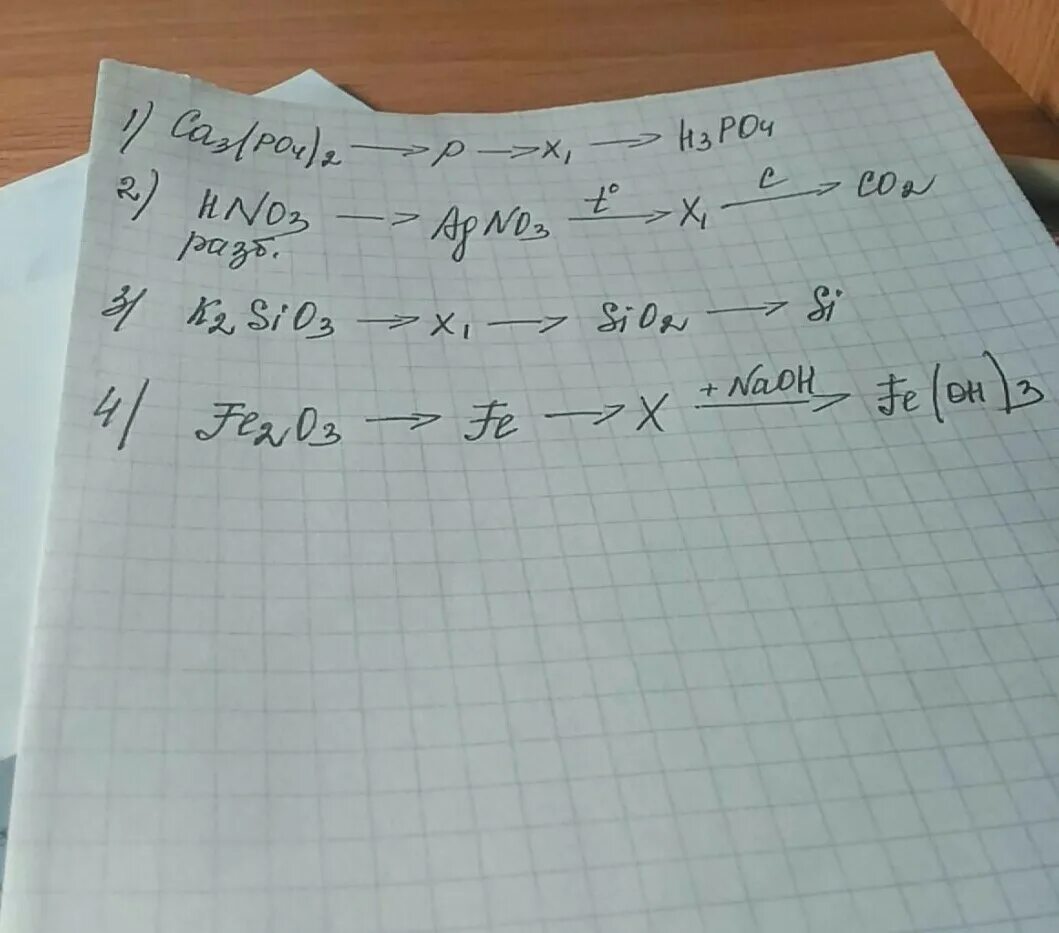 1) Ca3(PO4)2 → P → X1 → H3PO4
2) HNO3 разб. → AgNO3 t° → X1 C → CO2
3) K2SiO3 → X1 → SiO2 → Si
4) Fe2O3 → Fe → X + NaOH → Fe(OH)3